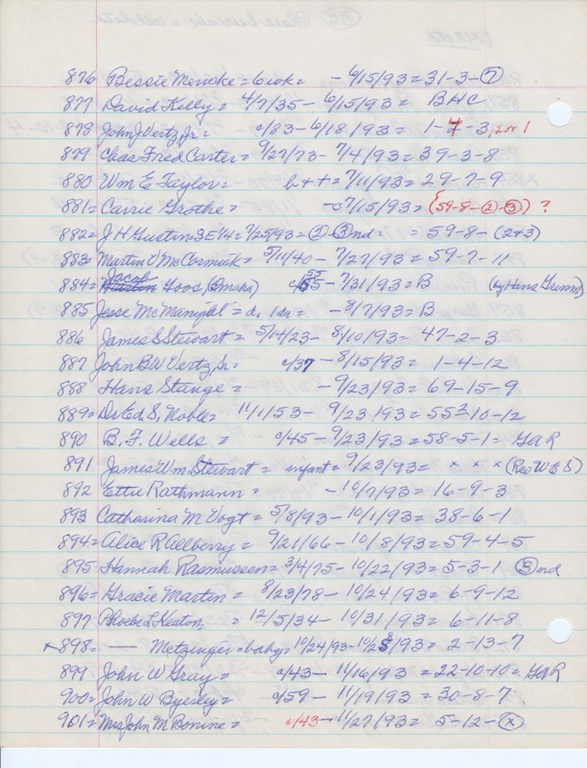 876 Bessie Mencke = 6 wk = - 6/15/93 = 31-3-⑦
877 David Kelly = 4/7/35 - 6/15/93 = BHC
878 John J Vertz, Jr = c/83 - 6/18/93 = 1-4-3, 2 or 1
879 Chas Fred Carter = 9/27/73 - 7/4/93 = 39-3-8
880 Wm E Taylor = b++ = 7/11/93 = 29-7-9
881 = Carrie Grothe = - c7/15/93 = (59-8-②-③) ?
882 = J H Gustin SE 1/4 = 7/25/93 = ②-③nd = 59-8-(2+3)
883 = Martin V McCormick = 5/11/40 - 7/27/93 = 59-7-11
884 = Jacob Hoos (Omaha) c/55 - 7/31/93 = B (by Hans Grimm)
885 Jesse "McManigal" = d. 1 da = - 8/7/93 = B
886 James S Stewart = 5/14/23 - 8/10/93 = 47-2-3
887 John B W Vertz, Sr = c/37 - 8/15/93 = 1-4-12
888 Hans Stange = - 9/23/93 = 69-15-9
889 = Dr Ed S. Noble = 11/1/53 - 9/23/93 = 55 2 10-12
890 B. F. Wells = c/45 - 9/23/93 = 58-5-1 = GAR
891 James Wm. Stewart = infant = 9/23/93 = x x x (Res W E S)
892 Etta Rathmann = - 10/7/93 = 16-9-3
893 Catharina M Vogt = 5/8/93 - 10/1/93 = 38-6-1
894 = Alice R Allberry = 9/21/66 - 10/8/93 = 59-4-5
895 = Hannah Rasmussen = 3/4/75 - 10/22/93 = 5-3-1 ③nd
896 = Gracie Martin = 8/23/78 - 10/24/93 = 6-9-12
897 Phoebe L Keaton = 12/5/34 - 10/31/93 = 6-11-8
x 898 = — Metzinger = baby = 10/24/93 - 10/28/93 = 2-13-7
899 John W Gray = c/43 - 11/16/93 = 22-10-10 = GAR
900 = John W Byerley = c/59 - 11/19/93 = 30-8-7
901 = Mrs John M Bonine = c/43 - 11/27/93 = 5-12-ⓧ